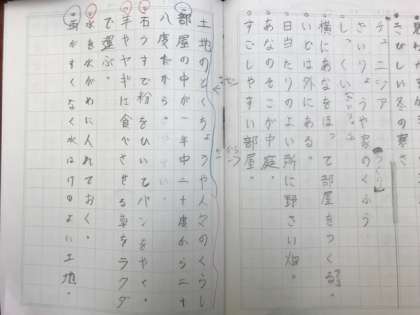 きびしい冬の寒さ
チュニジア
ざいりょうや家のくふう
しっくい
横にあなをほって部屋をつくる。
いどは外にある。
日当たりのよい所に野さい畑。
あなのそこが中庭。
すごしやすい部屋。
土地のとくちょうや人々のくらし
部屋の中が一年中二十度から二十
八度だから。
石うすで粉をひいてパンをやく。
羊ヤヤギに食べさせる草をラクダ
で運ぶ。
水を水がめに入れておく。
雨が少なく水はけのよい土地。